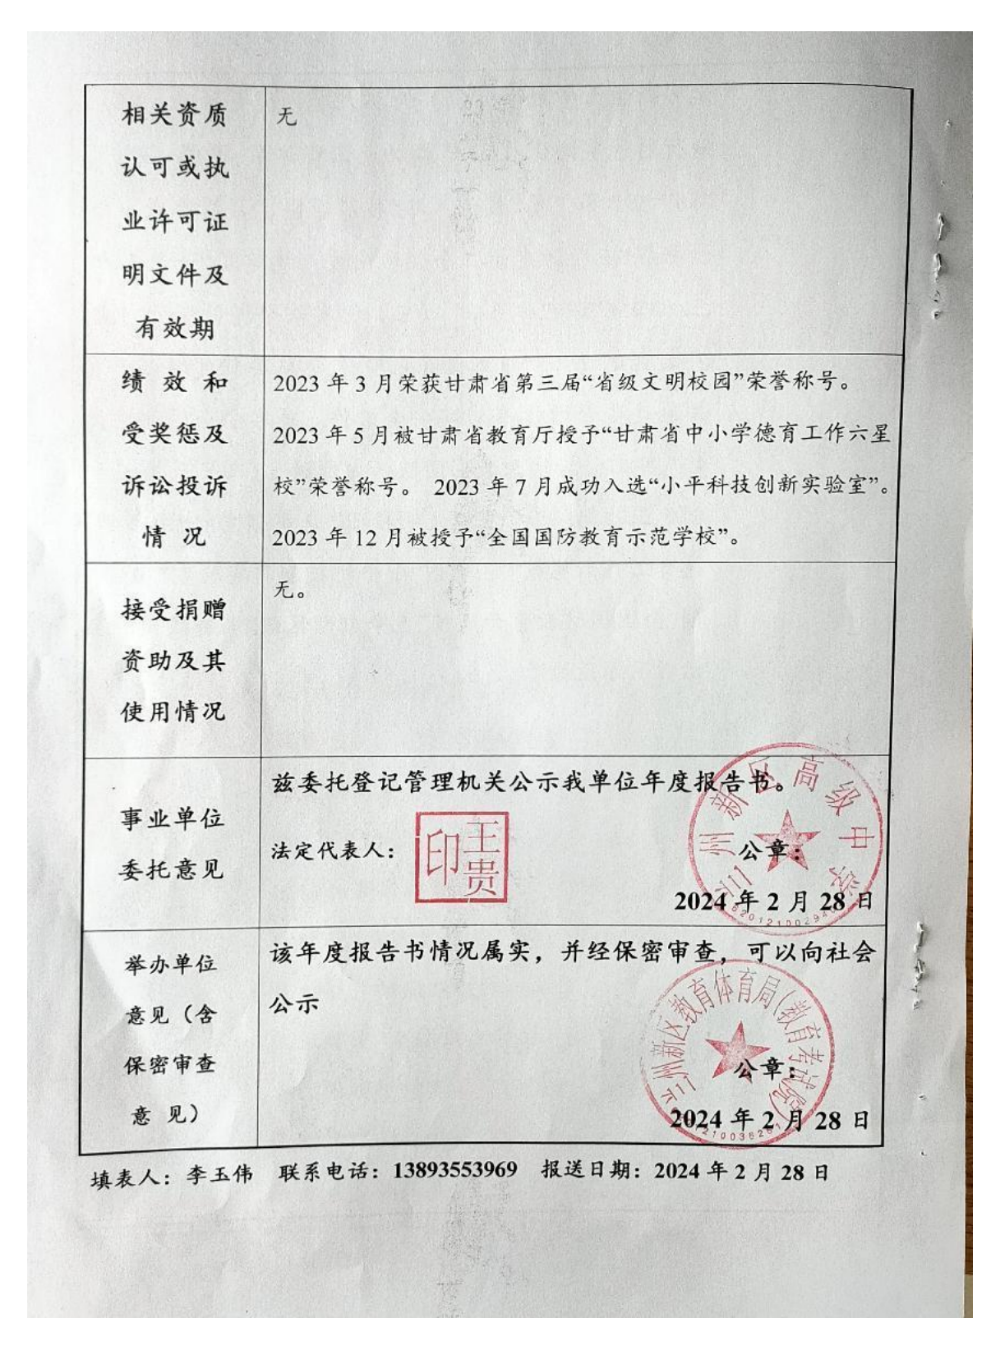 相关资质
认可或执
业许可证
明文件及
有效期
无
绩 效 和
受奖惩及
诉讼投诉
情 况
2023 年 3 月荣获甘肃省第三届“省级文明校园”荣誉称号。
2023 年 5 月被甘肃省教育厅授予“甘肃省中小学德育工作六星
校”荣誉称号。 2023 年 7 月成功入选“小平科技创新实验室”。
2023 年 12 月被授予“全国国防教育示范学校”。
接受捐赠
资助及其
使用情况
无。
事业单位
委托意见
兹委托登记管理机关公示我单位年度报告书。
法定代表人：
王贵
印
公章：
兰州新区高级中学
2024 年 2 月 28 日
举办单位
意见（含
保密审查
意 见）
该年度报告书情况属实，并经保密审查，可以向社会
公示
兰州新区教育体育局(教育考试院)
公章：
2024 年 2 月 28 日
填表人：李玉伟 联系电话：13893553969 报送日期：2024 年 2 月 28 日